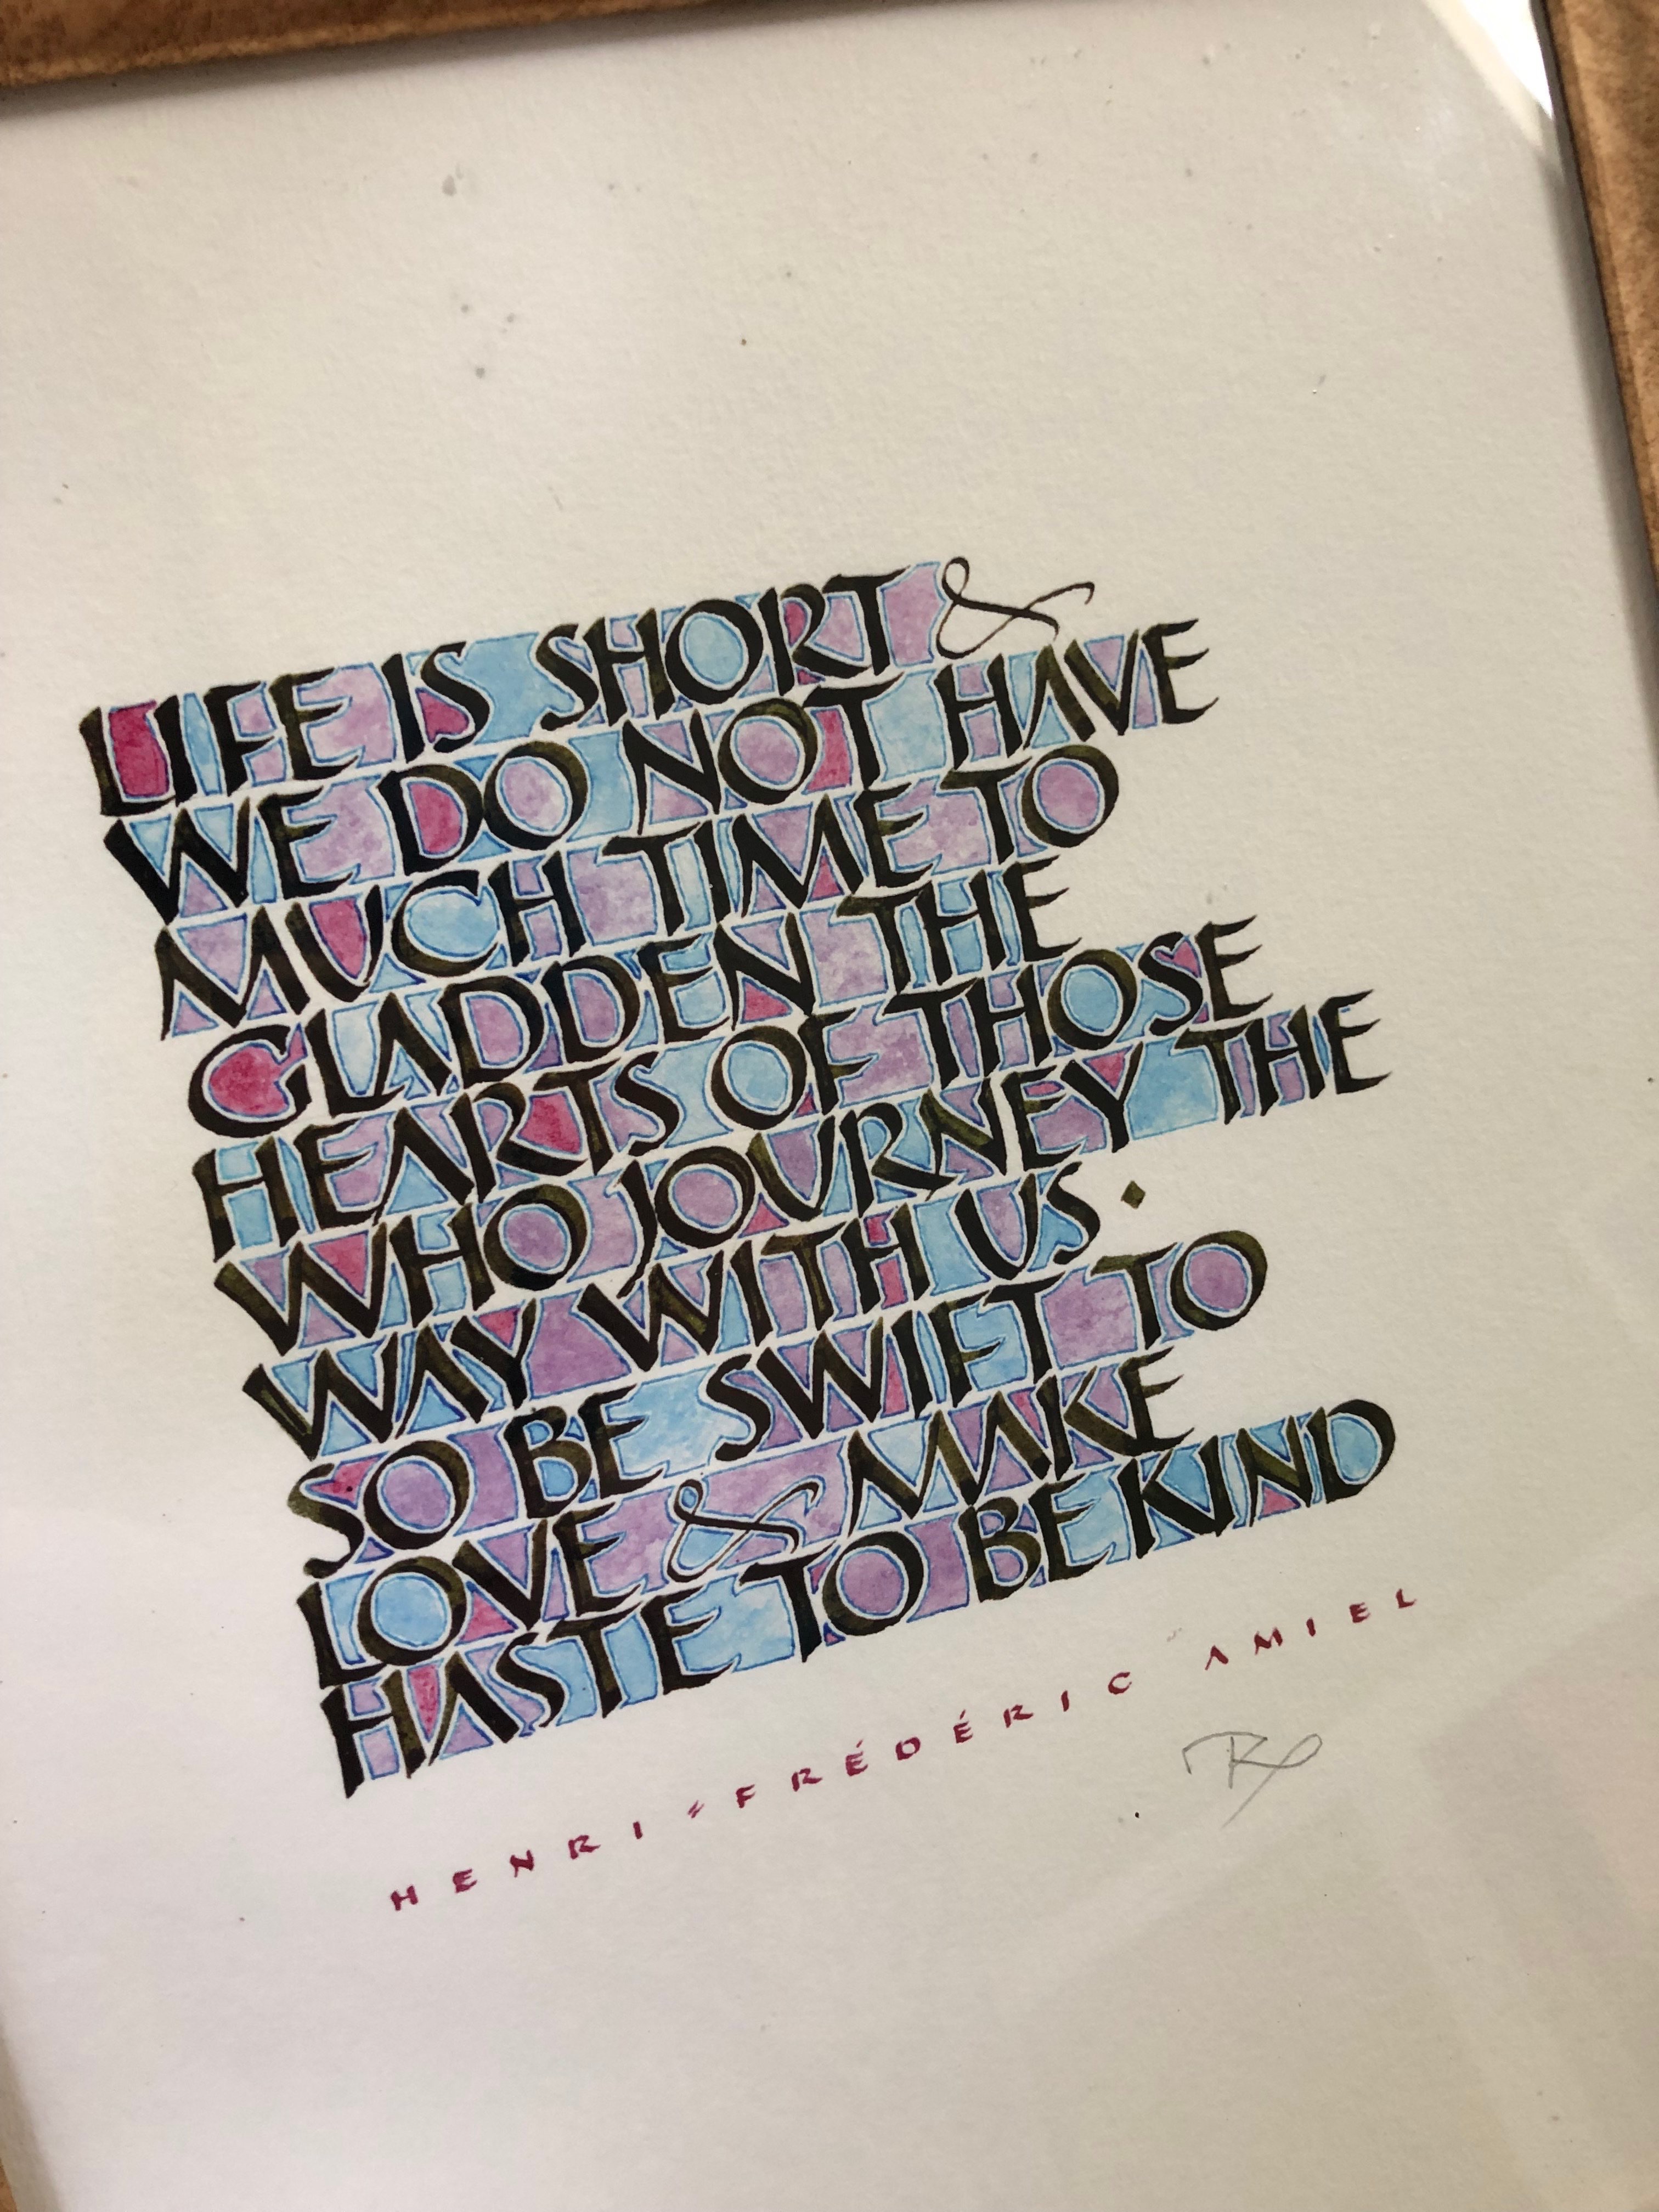 LIFE IS SHORT &
WE DO NOT HAVE
MUCH TIME TO
GLADDEN THE
HEARTS OF THOSE
WHO JOURNEY THE
WAY WITH US ·
SO BE SWIFT TO
LOVE & MAKE
HASTE TO BE KIND
HENRI-FRÉDÉRIC AMIEL